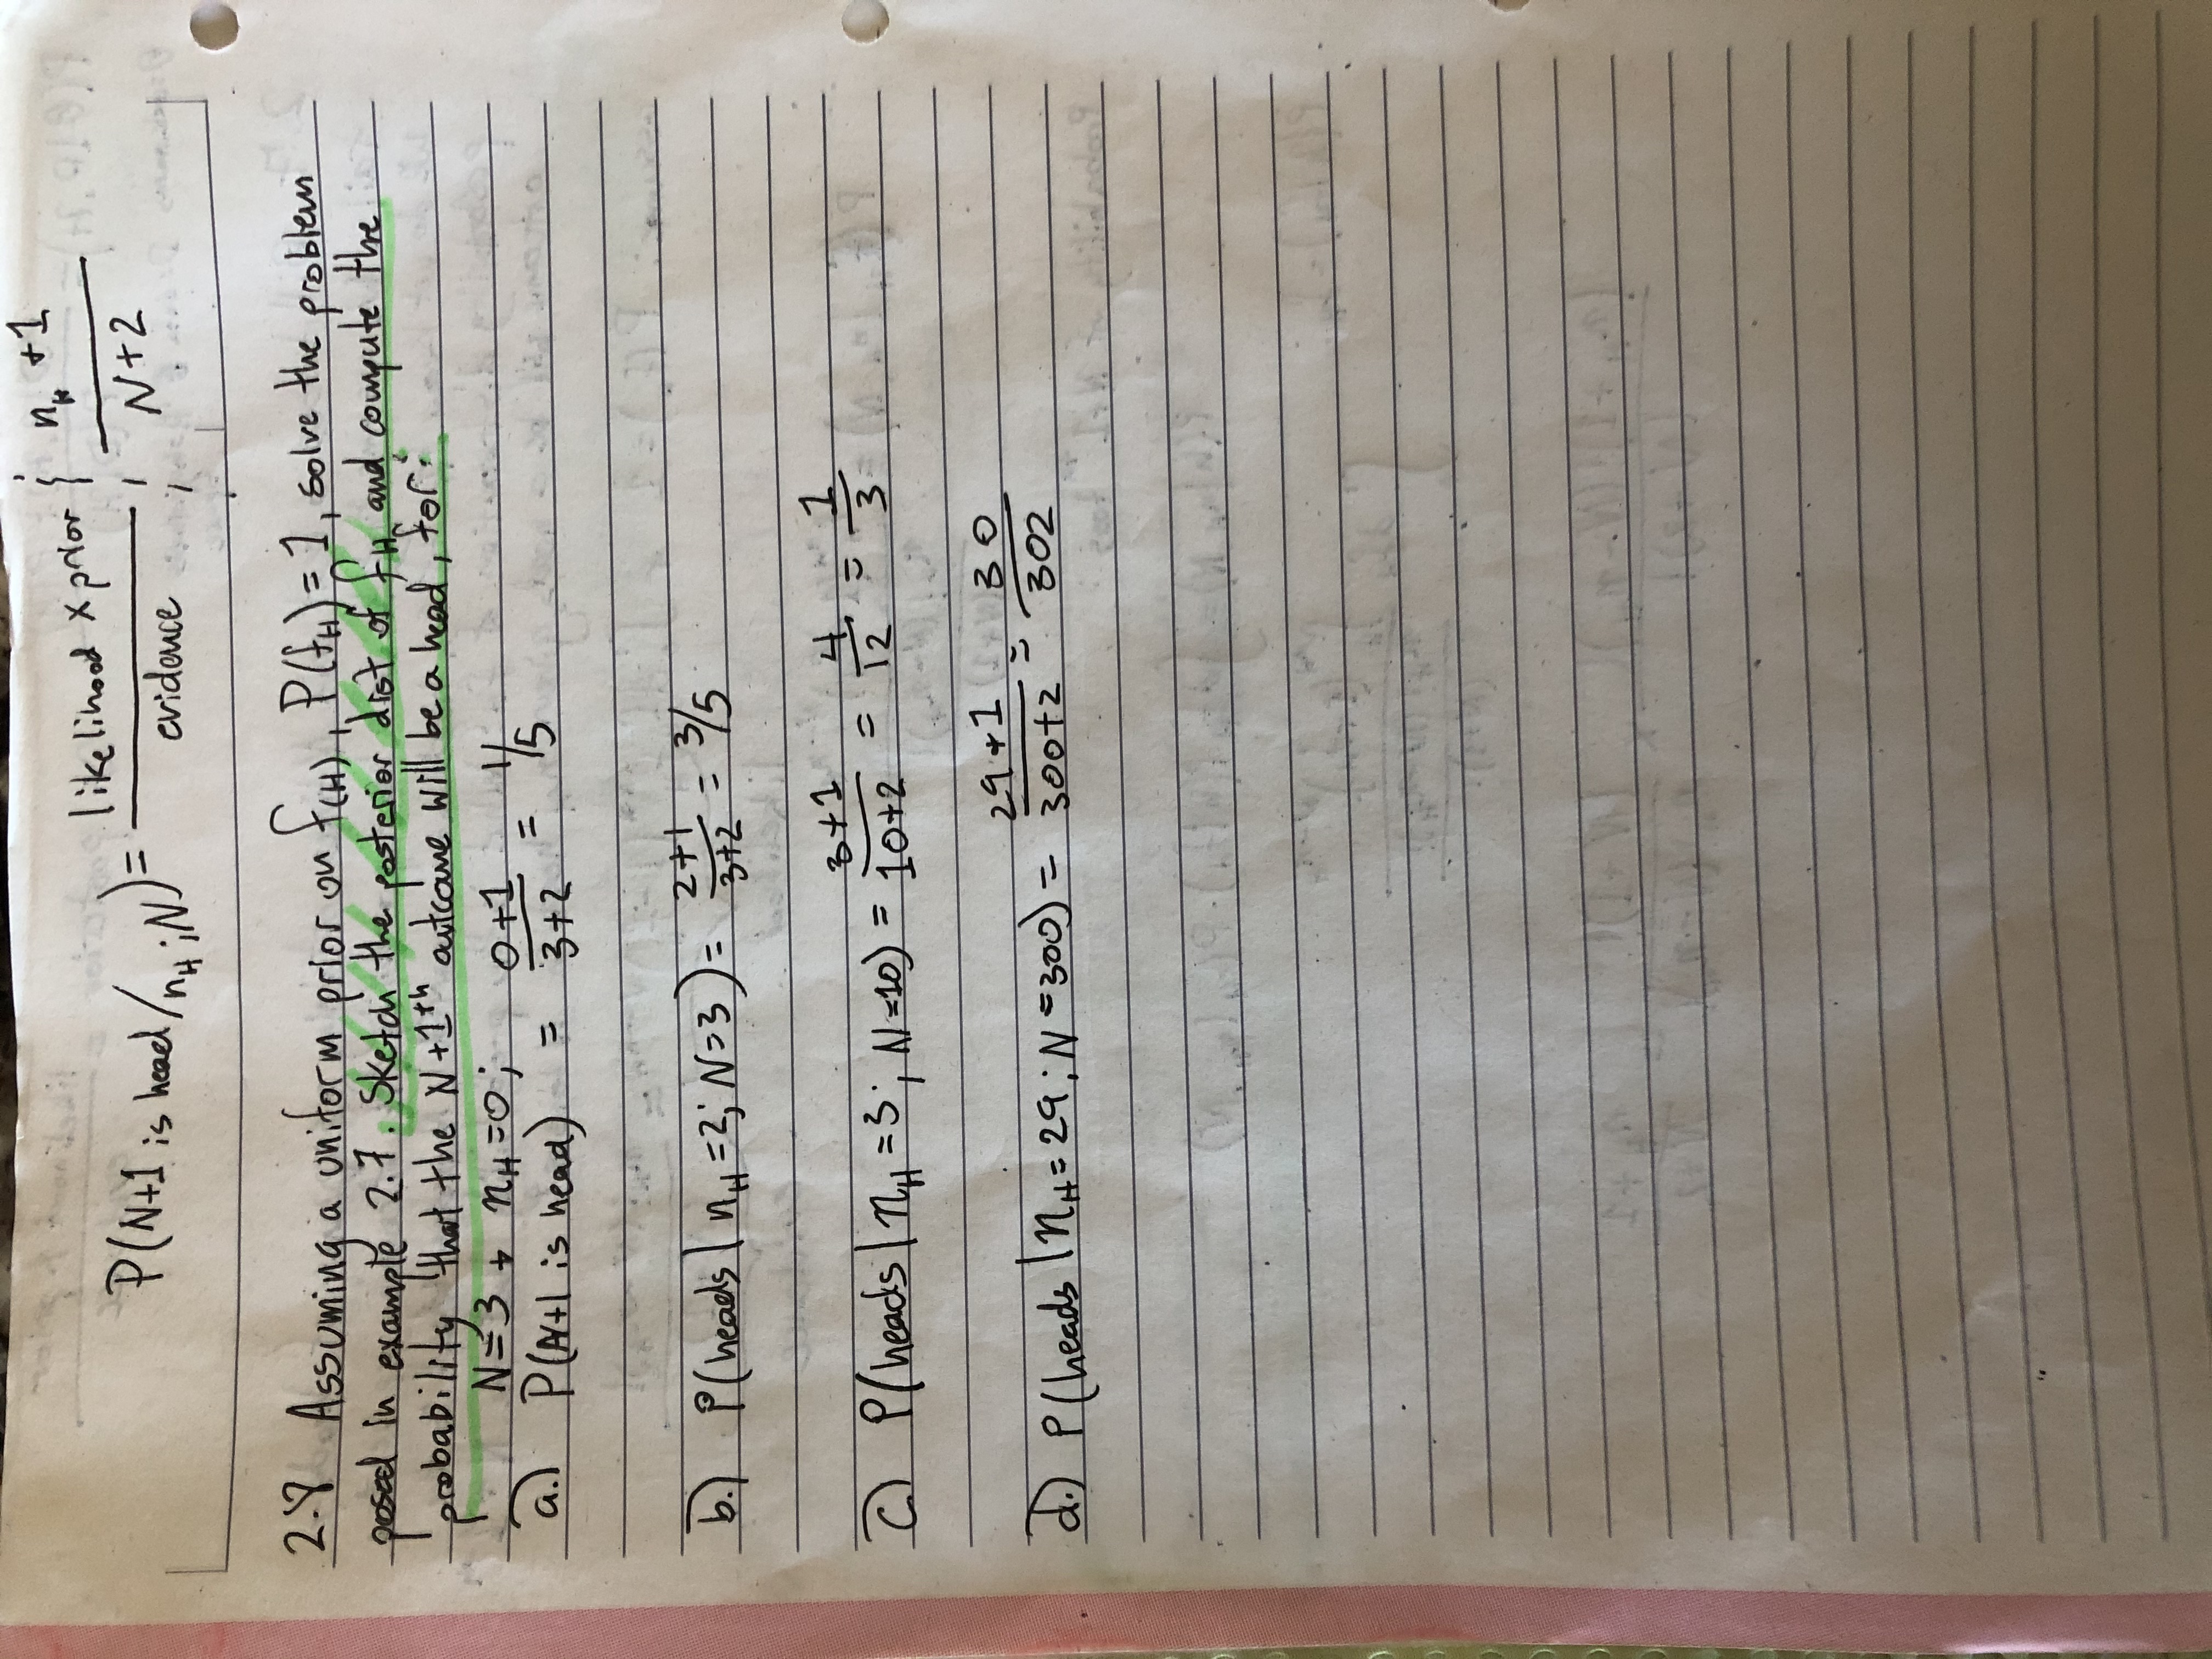 P(N+1 is head/n_H ; N) = likelihood x prior / evidence ; n_H +1 / N+2
2.8 Assuming a uniform prior on f(H), P(f_H) = 1, solve the problem
posed in example 2.7. Sketch the posterior dist of f_H and compute the
probability that the N+1^th outcome will be a head, for:
N=3 + n_H=0;
a.) P(N+1 is head) = 0+1 / 3+2 = 1/5
b.) P(heads | n_H =2; N=3) = 2+1 / 3+2 = 3/5
c.) P(heads | n_H =3 ; N=10) = 3+1 / 10+2 = 4/12 = 1/3
d.) P(heads | n_H=29 ; N=300) = 29+1 / 300+2 = 30/302